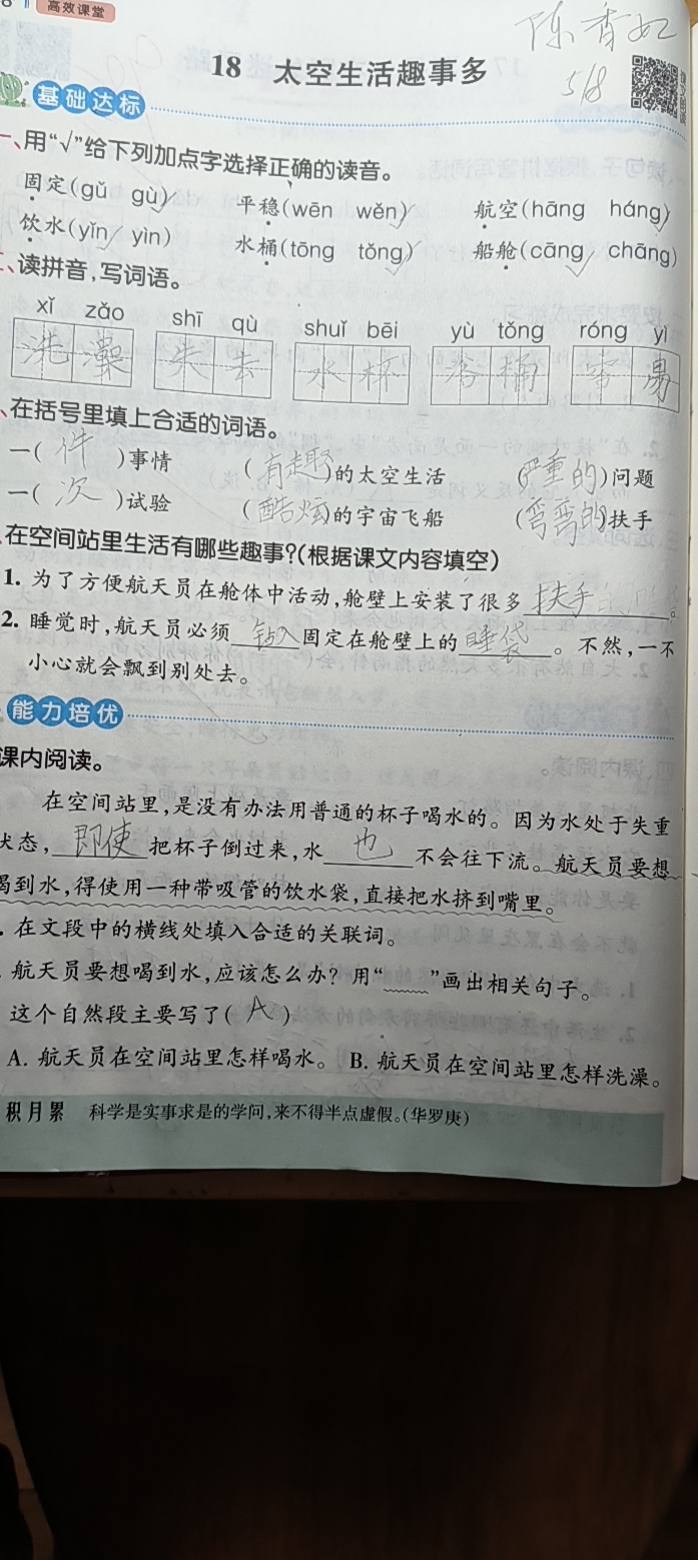 高效课堂
陈香如
5/8
18 太空生活趣事多
基础达标
一、用“√”给下列加点字选择正确的读音。
固定(gǔ gù)√ 平稳(wēn wěn)√ 航空(hāng háng)√
饮水(yǐn√ yìn) 水桶(tōng tǒng)√ 船舱(cāng√ chāng)
二、读拼音,写词语。
xǐ zǎo shī qù shuǐ bēi yù tǒng róng yì
洗澡 失去 水杯 浴桶 容易
、在括号里填上合适的词语。
一(件)事情 (有趣)的太空生活 (严重的)问题
一(次)试验 (酷炫)的宇宙飞船 (弯弯的)扶手
、在空间站里生活有哪些趣事?(根据课文内容填空)
1. 为了方便航天员在舱体中活动,舱壁上安装了很多扶手。
2. 睡觉时,航天员必须钻入固定在舱壁上的睡袋。不然,一不
小心就会飘到别处去。
能力培优
课内阅读。
在空间站里,是没有办法用普通的杯子喝水的。因为水处于失重
状态,即使把杯子倒过来,水也不会往下流。航天员要想
喝到水,得使用一种带吸管的饮水袋,直接把水挤到嘴里。
. 在文段中的横线处填入合适的关联词。
. 航天员要想喝到水,应该怎么办?用“﹏﹏”画出相关句子。
这个自然段主要写了(A)
A. 航天员在空间站里怎样喝水。 B. 航天员在空间站里怎样洗澡。
积月累 科学是实事求是的学问,来不得半点虚假。(华罗庚)